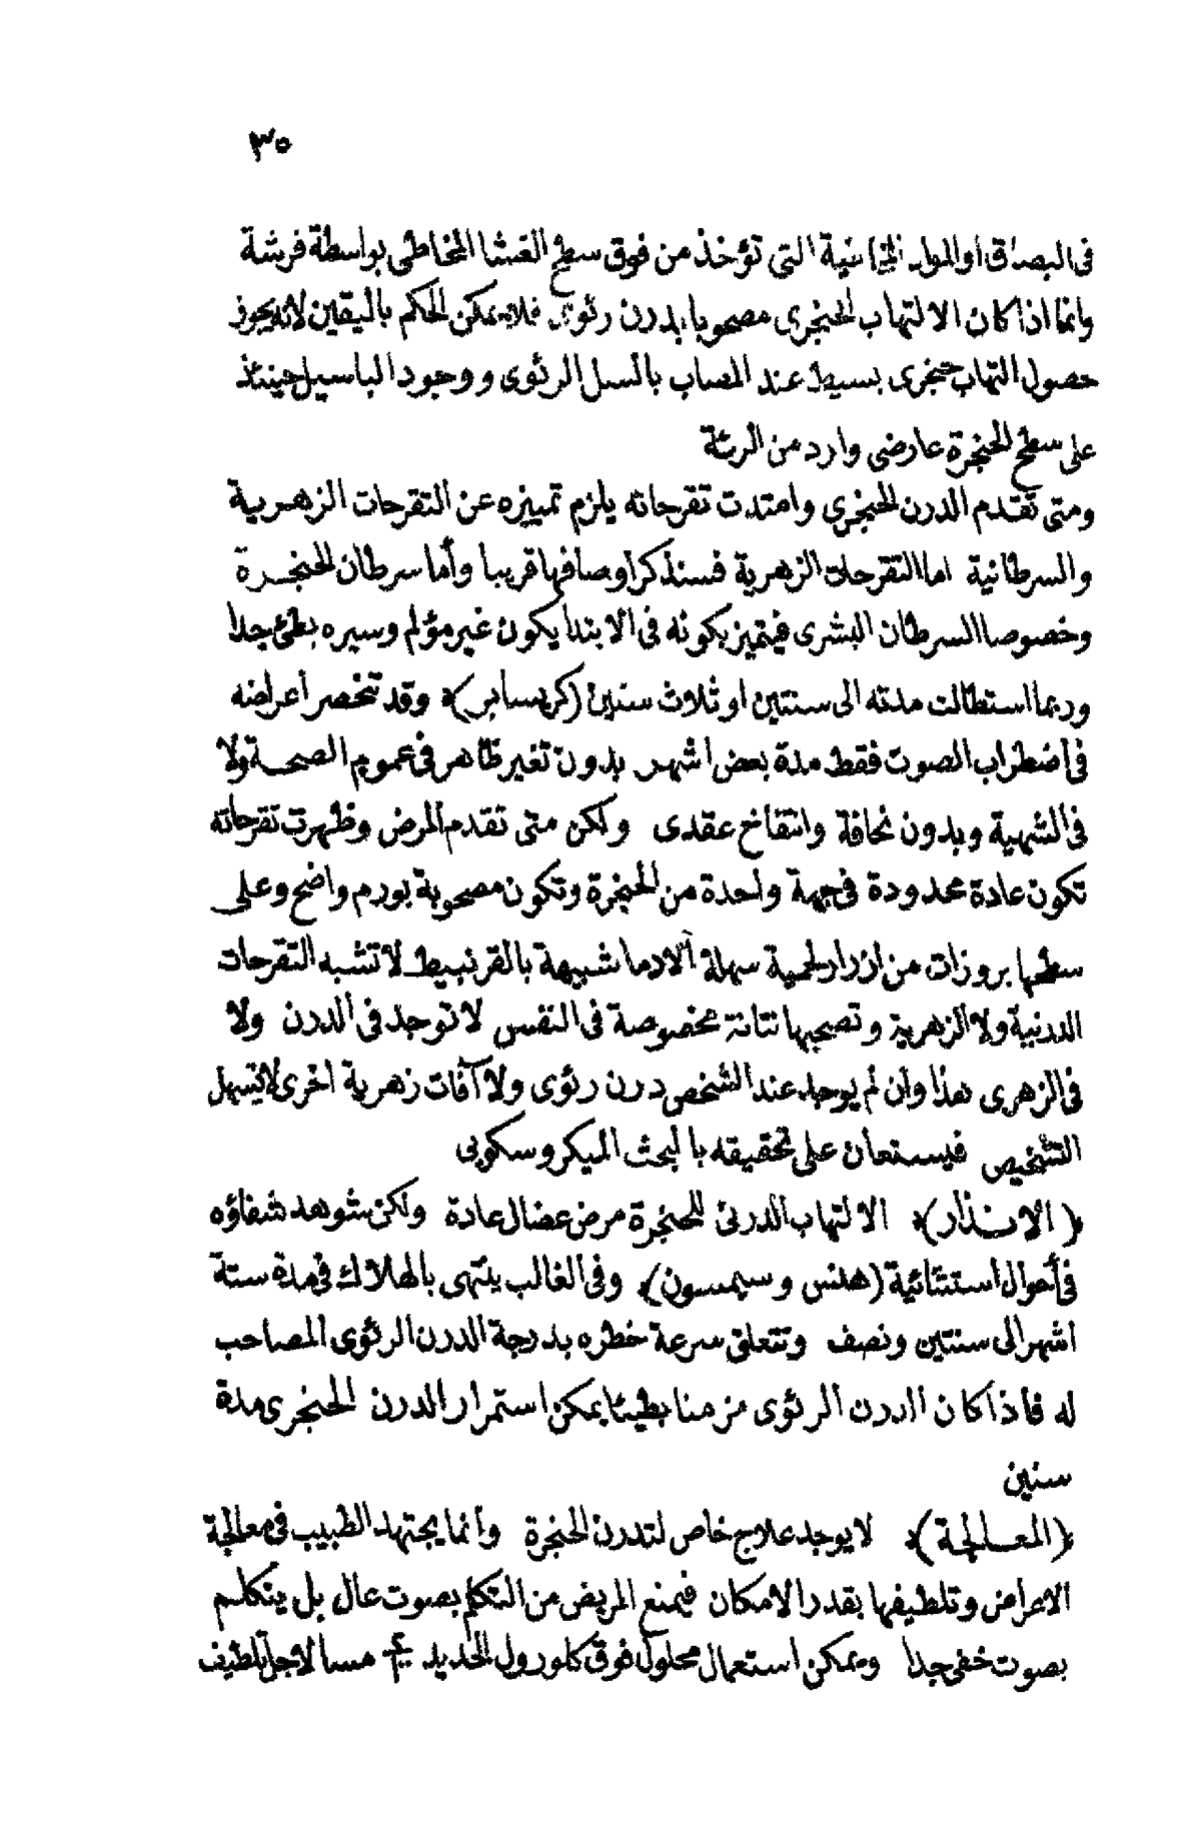 ٣٥
فى البصاق او المواد المخاطية التى تؤخذ من فوق سطح الغشا المخاطى بواسطة فرشة
وانما اذا كان الالتهاب الحنجرى مصحوبا بدرن رئوى فلا يمكن الحكم باليقين لانه يجوز
حصول التهاب حنجرى بسيط عند المصاب بالسل الرئوى ووجود الباسيل حينئذ
على سطح الحنجرة عارضى وارد من الرئة
ومتى تقدم الدرن الحنجرى وامتدت تقرحاته يلزم تمييزه عن التقرحات الزهرية
والسرطانية اما التقرحات الزهرية فسنذكر اوصافها قريبا وأما سرطان الحنجرة
وخصوصا السرطان البشرى فيتميز بكونه فى الابتدا يكون غير مؤلم وسيره بطئ جدا
وربما استطالت مدته الى سنتين او ثلاث سنين (كريسابر) وقد تنحصر أعراضه
فى اضطراب الصوت فقط مدة بعض اشهر بدون تغير ظاهر فى عموم الصحة ولا
فى الشهية وبدون نحافة وانتفاخ عقدى ولكن متى تقدم المرض وظهرت تقرحاته
تكون عادة محدودة فى جهة واحدة من الحنجرة وتكون مصحوبة بورم واضح وعلى
سطحها بروزات من ازرار لحمية سهلة الادما شبيهة بالقرنبيط لا تشبه التقرحات
الدرنية ولا الزهرية وتصحبها نتانة مخصوصة فى النفس لا توجد فى الدرن ولا
فى الزهرى هذا وان لم يوجد عند الشخص درن رئوى ولا آفات زهرية اخرى لا يتسهل
التشخيص فيستعان على تحقيقه بالبحث الميكروسكوبى
(الانذار) الالتهاب الدرنى للحنجرة مرض عضال عادة ولكن شوهد شفاؤه
فى أحوال استثنائية (هلنس وسيمسون) وفى الغالب ينتهى بالهلاك فى مدة ستة
اشهر الى سنتين ونصف وتتعلق سرعة خطره بدرجة الدرن الرئوى المصاحب
له فاذا كان الدرن الرئوى مزمنا بطيئا يمكن استمرار الدرن الحنجرى مدة
سنين
(المعالجة) لا يوجد علاج خاص لتدرن الحنجرة وانما يجتهد الطبيب فى معالجة
الاعراض وتلطيفها بقدر الامكان فيمنع المريض من التكلم بصوت عال بل يتكلم
بصوت خفى جدا ويمكن استعمال محلول فوق كلورول الحديد مسا لاجل تلطيف